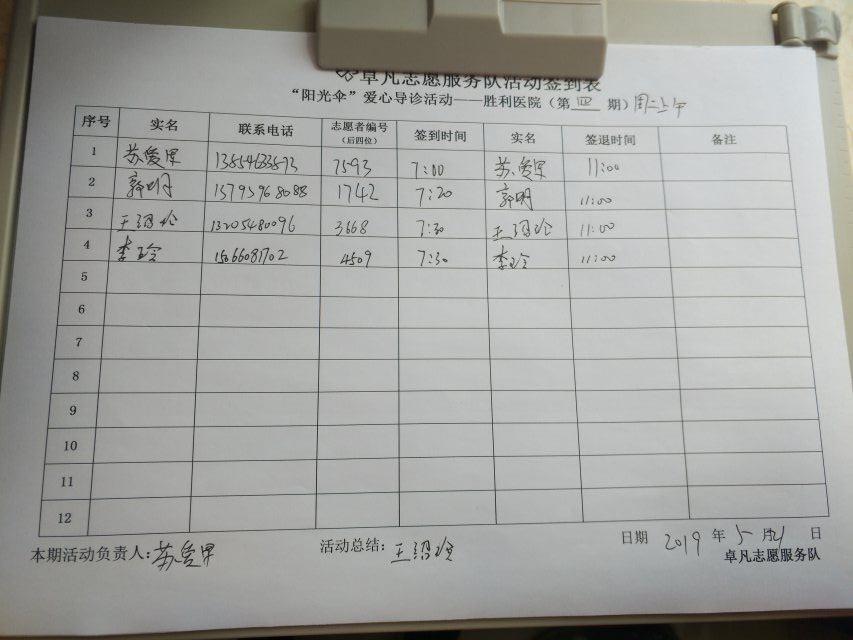 卓凡志愿服务队活动签到表
“阳光伞”爱心导诊活动——胜利医院（第四期）周二上午
序号 实名 联系电话 志愿者编号（后四位） 签到时间 实名 签退时间 备注
1 苏爱军 13854633593 7593 7:00 苏爱军 11:00
2 郭明 15793968088 1742 7:20 郭明 11:00
3 王绍玲 13205480096 3668 7:30 王绍玲 11:00
4 李玲 15066081702 4509 7:30 李玲 11:00
5
6
7
8
9
10
11
12
本期活动负责人：苏爱军 活动总结：王绍玲 日期 2019年5月21日
卓凡志愿服务队